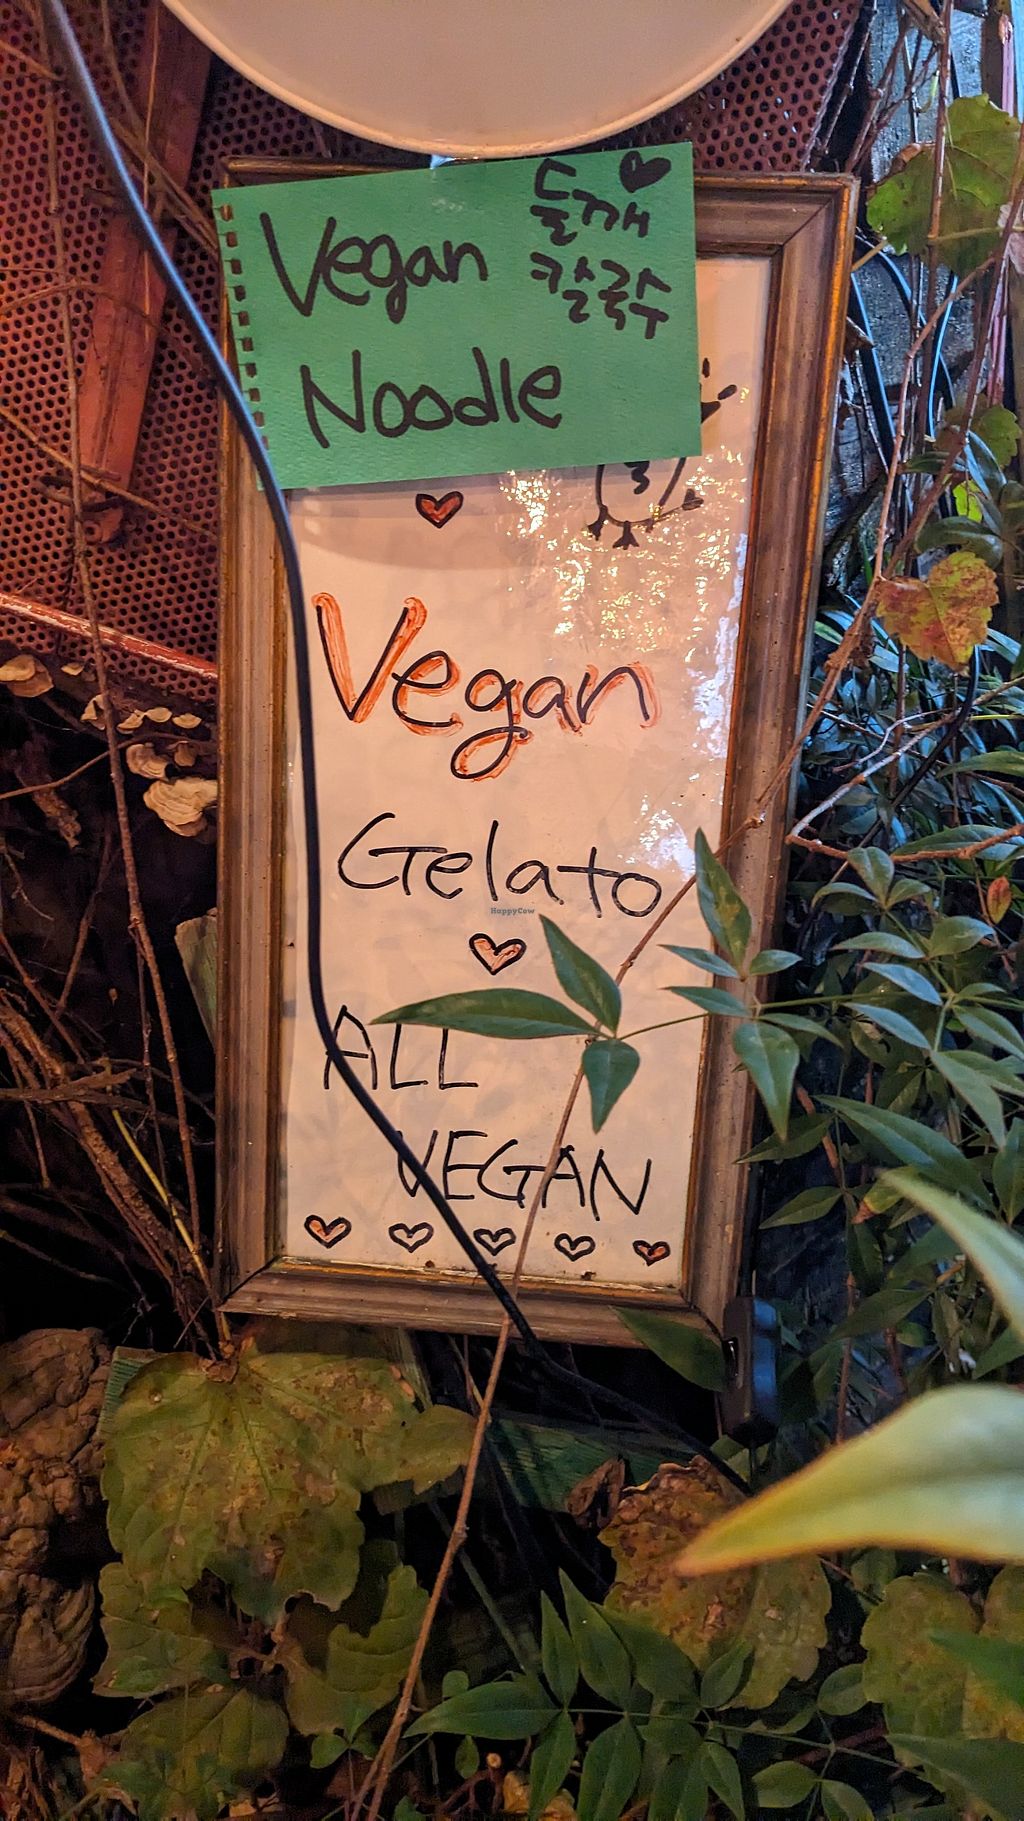 Vegan
들깨
칼국수
Noodle
Vegan
Gelato
HappyCow
ALL
VEGAN